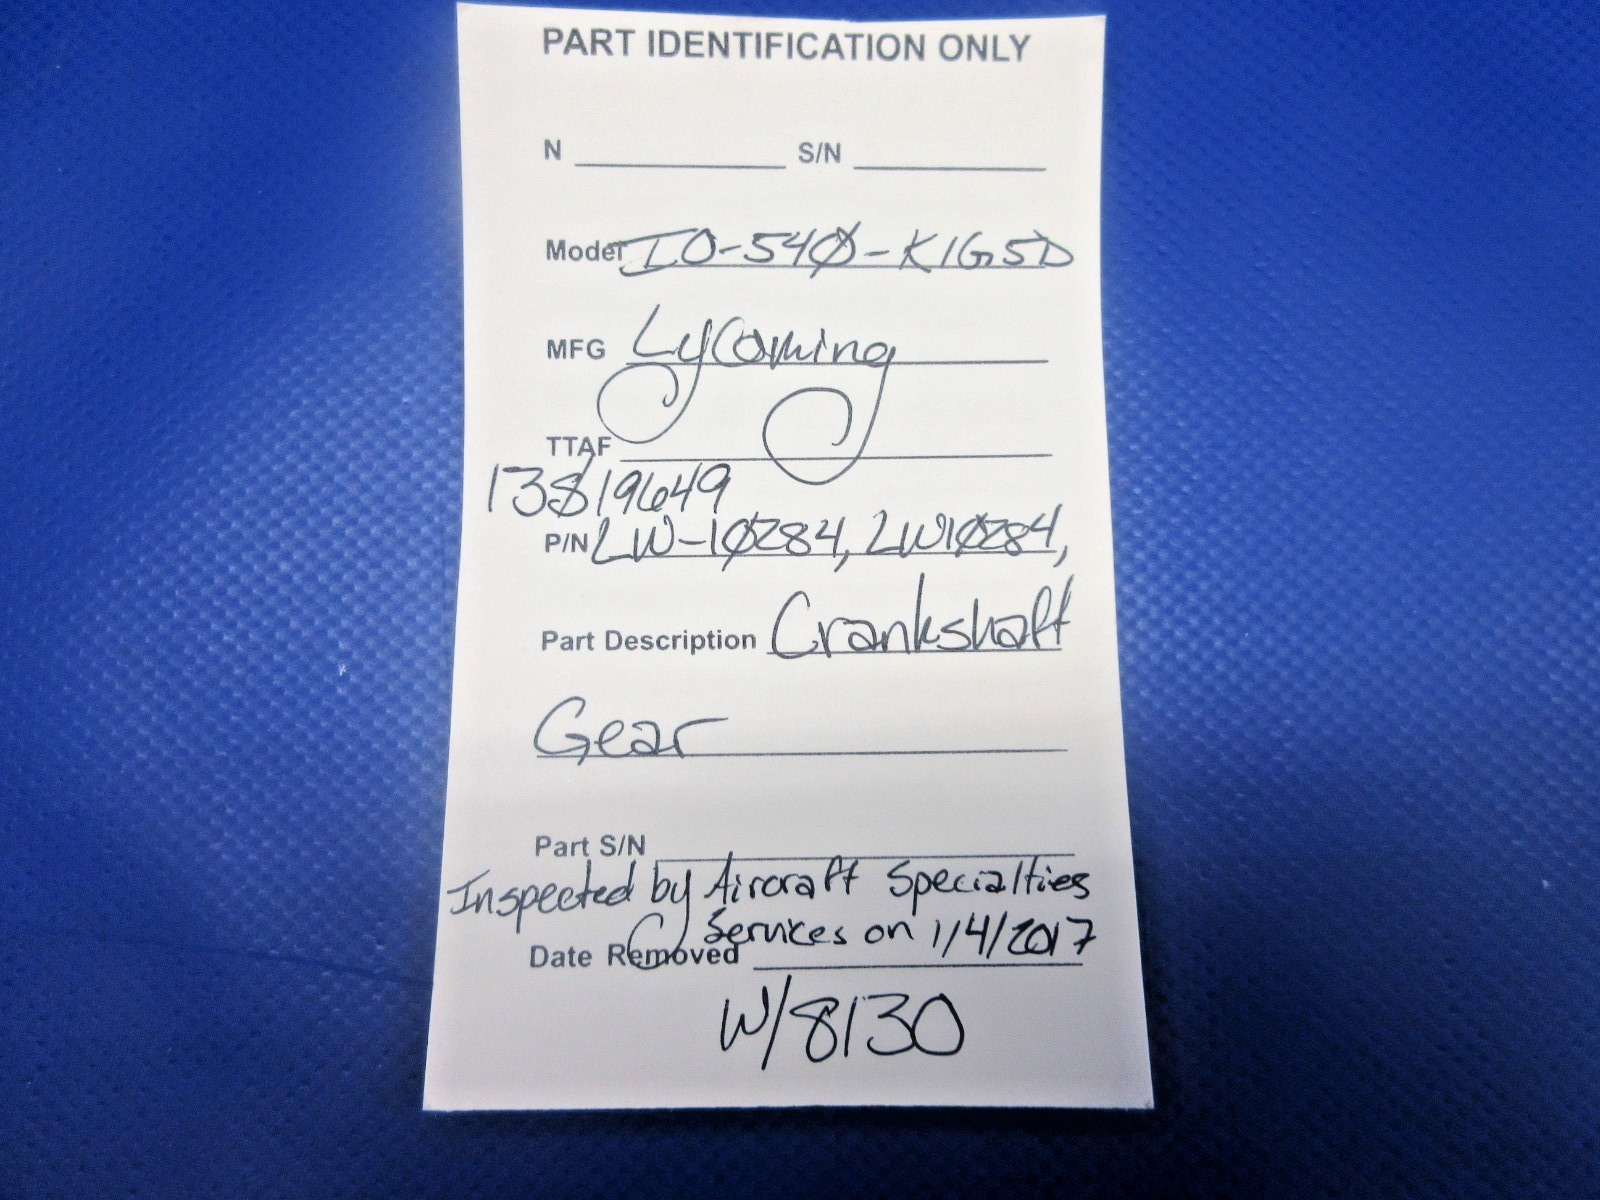 PART IDENTIFICATION ONLY
N S/N
Model IO-540-K1G5D
MFG Lycoming
TTAF
13S19649
P/N LW-10284, LW10284,
Part Description Crankshaft
Gear
Part S/N
Inspected by Aircraft Specialties
Services on 1/4/2017
Date Removed
W/8130